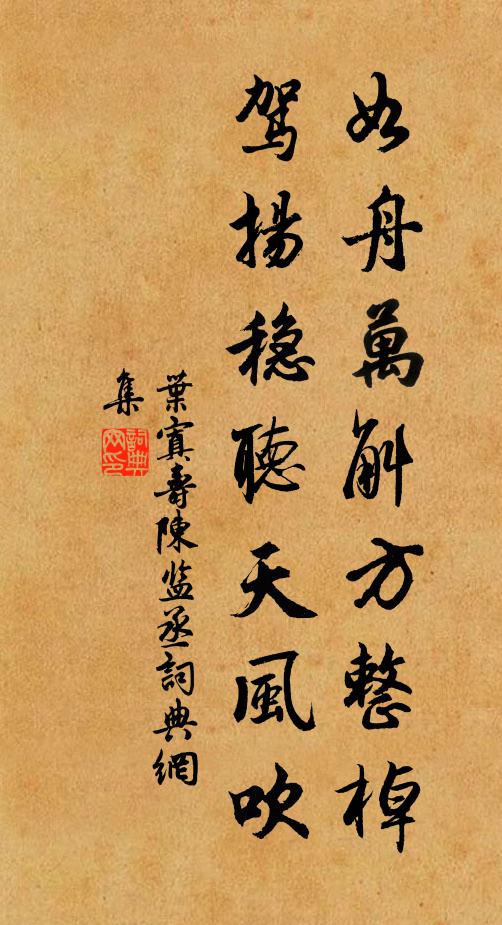 如舟萬斛方整棹
駕揚穩聽天風吹
葉寘壽陳監丞詞典網
集
詞典
网印